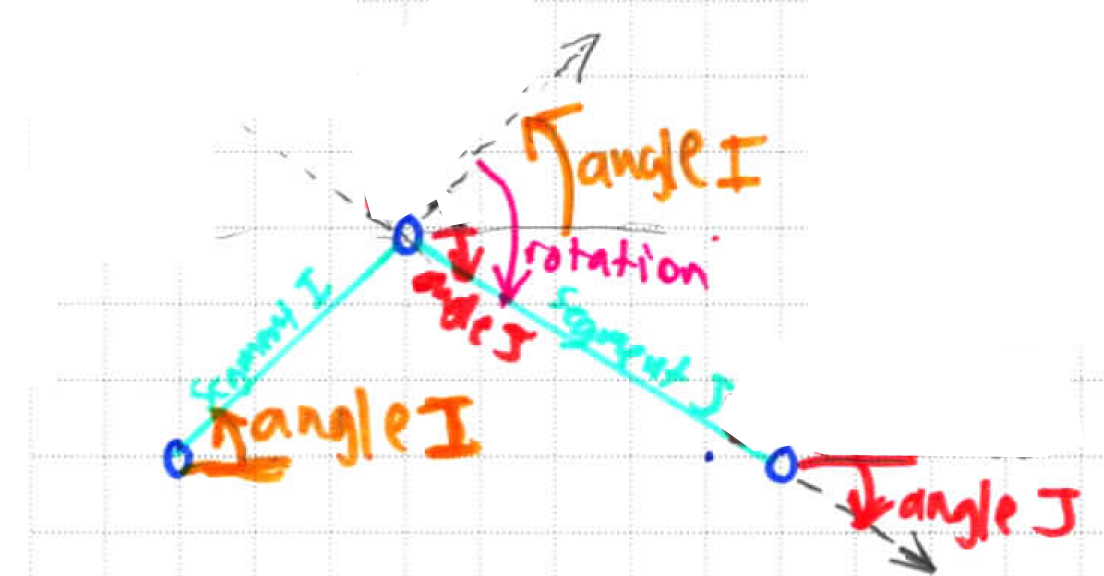 angle I
rotation
angle J
segment J
segment I
angle I
angle J